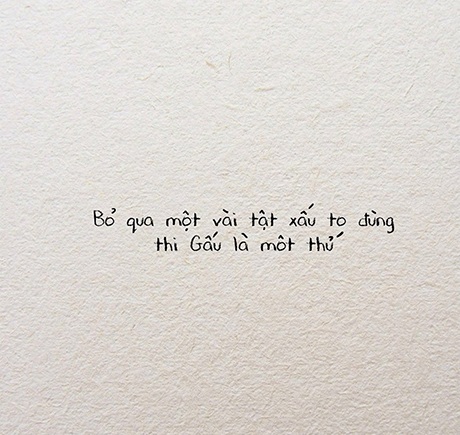 Bỏ qua một vài tật xấu to đùng
thi Gấu là môt thứ